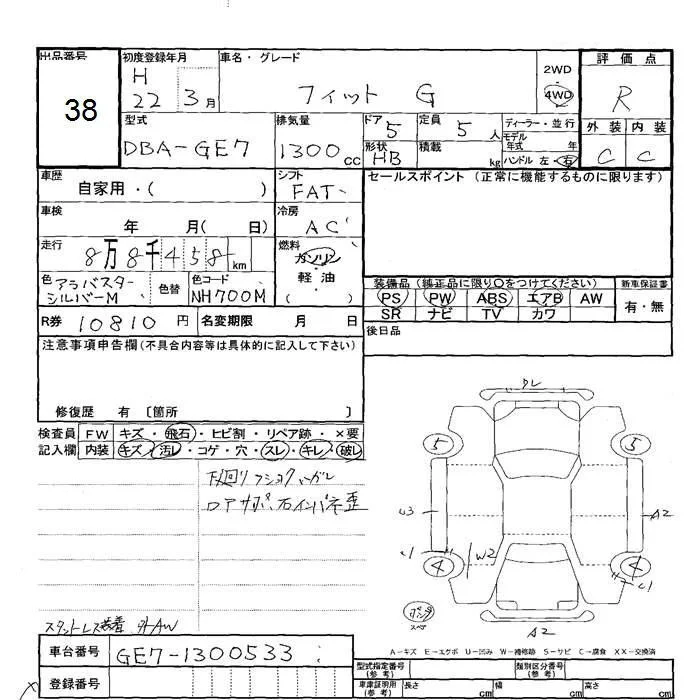 出品番号
38
初度登録年月
H
22 3月
車名・グレード
フィット G
2WD
4WD
評価点
R
外装 内装
C C
型式
DBA-GE7
排気量
1300cc
ドア 5
形状 HB
定員 5人
積載 kg
ディーラー・並行
モデル年式 年
ハンドル 左・右
車歴
自家用・( )
シフト
FAT
セールスポイント (正常に機能するものに限ります)
車検
年 月( 日)
冷房
AC
走行
8万8千458km
燃料
ガソリン
軽油
( )
色 アラバスターシルバーM
色替
色コード
NH700M
装備品(純正品に限り○をつけてください)
PS PW ABS エアB AW
SR ナビ TV カワ
新車保証書
有・無
R券 10810円
名変期限 月 日
後日品
注意事項申告欄(不具合内容等は具体的に記入して下さい)
修復歴 有 〔箇所 〕
検査員記入欄
FW キズ・飛石・ヒビ割・リペア跡・×要
内装 キズ・汚レ・コゲ・穴・スレ・キレ・破レ
下廻り
スタットレス装着 外AW
DL
5 5
U3 A2
W2
4 4
A2
A-キズ E-エクボ U-凹み W-補修跡 S-サビ C-腐食 XX-交換済
車台番号
GE7-1300533
登録番号
型式指定番号(参考)
類別区分番号(参考)
車庫証明用(参考) 長さ cm 幅 cm 高さ cm